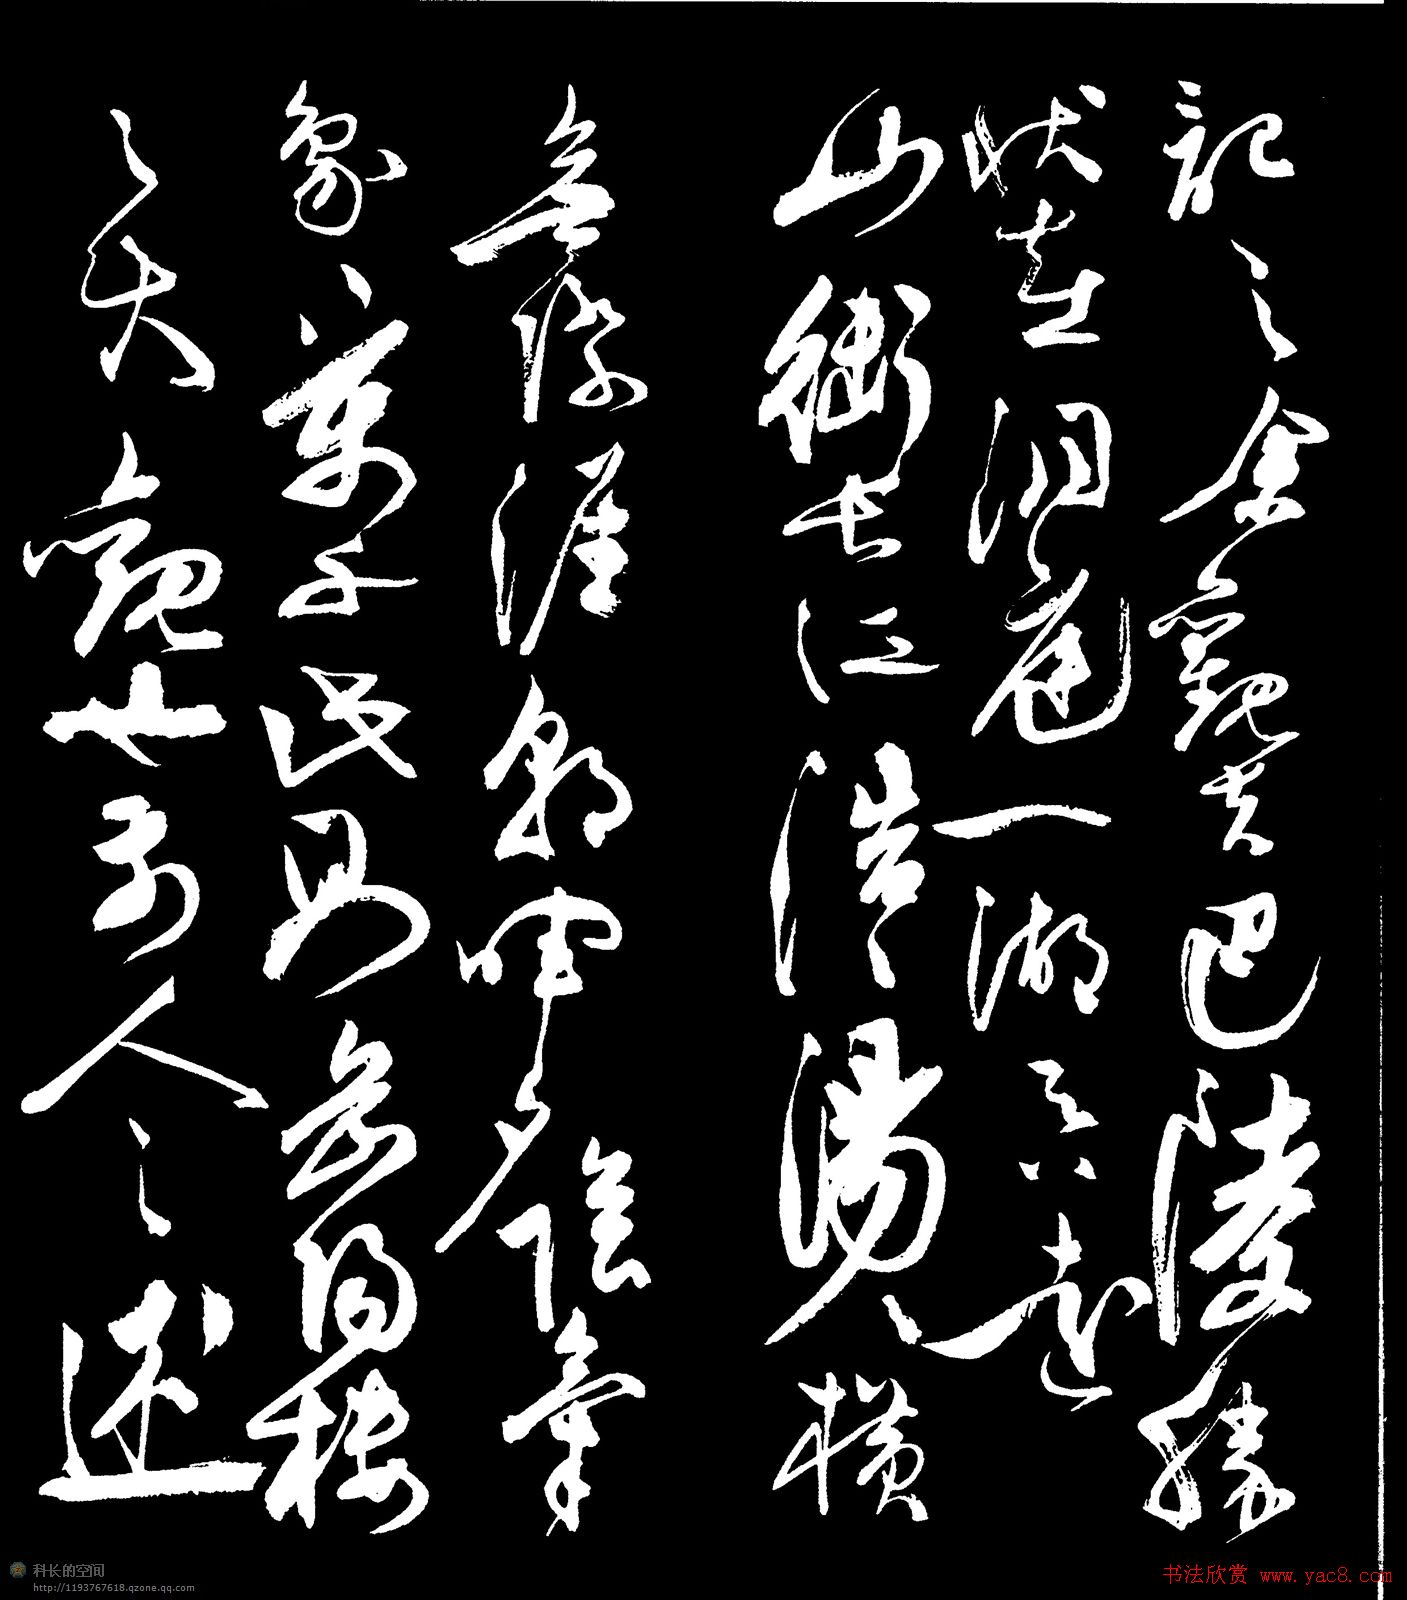 記之余觀夫巴陵勝
狀在洞庭一湖吞遠
山銜長江浩〻湯〻橫
無際涯朝暉夕陰氣
象萬千此則岳陽樓
之大觀也前人之述
科长的空间
http://1193767618.qzone.qq.com
书法欣赏 www.yac8.com